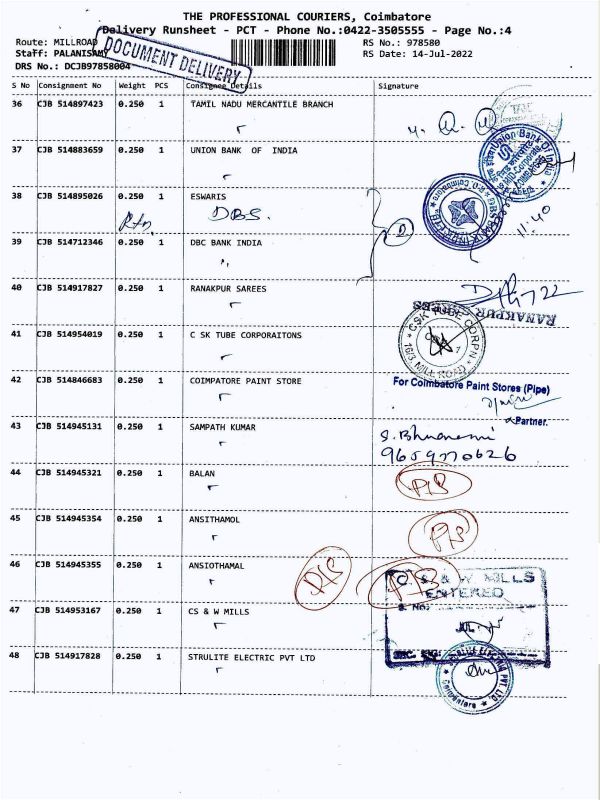 THE PROFESSIONAL COURIERS, Coimbatore
Delivery Runsheet - PCT - Phone No.:0422-3505555 - Page No.:4
Route: MILLROAD
RS No.: 978580
Staff: PALANISAMY
RS Date: 14-Jul-2022
DRS No.: DCJB97858004
DOCUMENT DELIVERY
S No Consignment No Weight PCS Consignee Details Signature
36 CJB 514897423 0.250 1 TAMIL NADU MERCANTILE BRANCH
37 CJB 514883659 0.250 1 UNION BANK OF INDIA
Union Bank Of India
38 CJB 514895026 0.250 1 ESWARIS
Rtn DBS.
D
11:40
39 CJB 514712346 0.250 1 DBC BANK INDIA
40 CJB 514917827 0.250 1 RANAKPUR SAREES
RANAKPUR SAREES
41 CJB 514954019 0.250 1 C SK TUBE CORPORAITONS
CSK TUBE CORPN
16/3, MILL ROAD
42 CJB 514846683 0.250 1 COIMPATORE PAINT STORE
For Coimbatore Paint Stores (Pipe)
Partner.
43 CJB 514945131 0.250 1 SAMPATH KUMAR
44 CJB 514945321 0.250 1 BALAN
45 CJB 514945354 0.250 1 ANSITHAMOL
46 CJB 514945355 0.250 1 ANSIOTHAMAL
C. S. & W MILLS
ENTERED
47 CJB 514953167 0.250 1 CS & W MILLS
48 CJB 514917828 0.250 1 STRULITE ELECTRIC PVT LTD